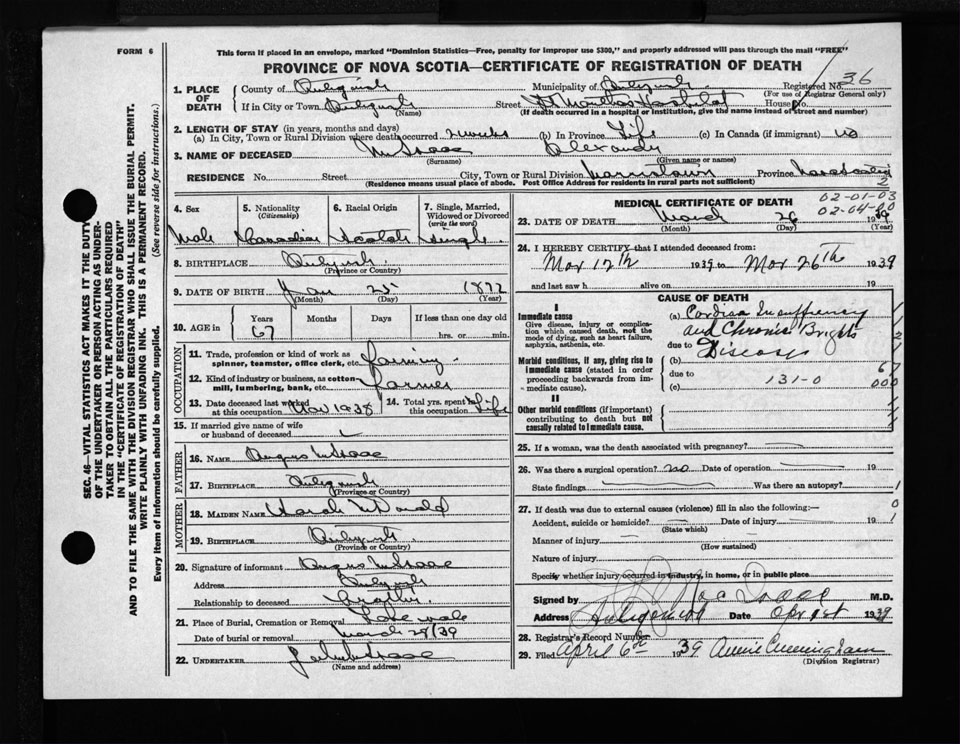 FORM 6
This form if placed in an envelope, marked "Dominion Statistics—Free, penalty for improper use $300," and properly addressed will pass through the mail "FREE"
PROVINCE OF NOVA SCOTIA—CERTIFICATE OF REGISTRATION OF DEATH
SEC. 46—VITAL STATISTICS ACT MAKES IT THE DUTY
OF THE UNDERTAKER OR PERSON ACTING AS UNDER-
TAKER TO OBTAIN ALL THE PARTICULARS REQUIRED
IN THE "CERTIFICATE OF REGISTRATION OF DEATH"
AND TO FILE THE SAME WITH THE DIVISION REGISTRAR WHO SHALL ISSUE THE BURIAL PERMIT.
WRITE PLAINLY WITH UNFADING INK. THIS IS A PERMANENT RECORD.
Every item of Information should be carefully supplied. (See reverse side for instructions.)
1. PLACE OF DEATH
County of Antigonish Municipality of Antigonish Registered No. 36
(For use of Registrar General only)
If in City or Town Antigonish Street St Marthas Hospital House No.
(Name) (If death occurred in a hospital or institution, give the name instead of street and number)
2. LENGTH OF STAY (in years, months and days)
(a) In City, Town or Rural Division where death occurred 2 weeks (b) In Province Life (c) In Canada (if immigrant) no
3. NAME OF DECEASED McIsaac Alexander
(Surname) (Given name or names)
RESIDENCE No. Street City, Town or Rural Division Province Nova Scotia
(Residence means usual place of abode. Post Office Address for residents in rural parts not sufficient)
2
4. Sex 5. Nationality (Citizenship) 6. Racial Origin 7. Single, Married, Widowed or Divorced (write the word)
Male Canadian Scotch Single
8. BIRTHPLACE Antigonish
(Province or Country)
9. DATE OF BIRTH Jan 25 1872
(Month) (Day) (Year)
10. AGE in Years Months Days If less than one day
67 hrs. or min.
OCCUPATION
11. Trade, profession or kind of work as spinner, teamster, office clerk, etc. farming
12. Kind of industry or business, as cotton mill, lumbering, bank, etc. Farmer
13. Date deceased last worked at this occupation Nov 1938 14. Total yrs. spent in this occupation Life
15. If married give name of wife or husband of deceased
FATHER
16. NAME Angus McIsaac
17. BIRTHPLACE Antigonish
(Province or Country)
MOTHER
18. MAIDEN NAME Sarah McDonald
19. BIRTHPLACE Antigonish
(Province or Country)
20. Signature of informant Angus McIsaac
Address Antigonish
Relationship to deceased Brother
21. Place of Burial, Cremation or Removal Lakevale
Date of burial or removal March 28/39
22. UNDERTAKER John McIsaac
(Name and address)
MEDICAL CERTIFICATE OF DEATH
02-01-03
02-04-00
23. DATE OF DEATH March 26 1939
(Month) (Day) (Year)
24. I HEREBY CERTIFY that I attended deceased from:
Mar 12th 1939 to Mar 26th 1939
and last saw h alive on 19
CAUSE OF DEATH
I
Immediate cause
Give disease, injury or complication which caused death, not the mode of dying, such as heart failure, asphyxia, asthenia, etc.
(a) Cardiac Insufficiency
and Chronic Brights
due to Disease
Morbid conditions, if any, giving rise to immediate cause (stated in order proceeding backwards from immediate cause).
(b)
due to 67
(c) 131-0 000
II
Other morbid conditions (if important) contributing to death but not causally related to immediate cause.
25. If a woman, was the death associated with pregnancy?
26. Was there a surgical operation? no Date of operation 19
State findings Was there an autopsy? 1
27. If death was due to external causes (violence) fill in also the following:— 0
Accident, suicide or homicide? Date of injury 19 1
(State which)
Manner of injury
(How sustained)
Nature of injury
Specify whether injury occurred in industry, in home, or in public place
Signed by MacIsaac M.D.
Address Antigonish Date Apr 1st 1939
28. Registrar's Record Number
29. Filed April 6th 1939 Annie Cunningham
(Division Registrar)